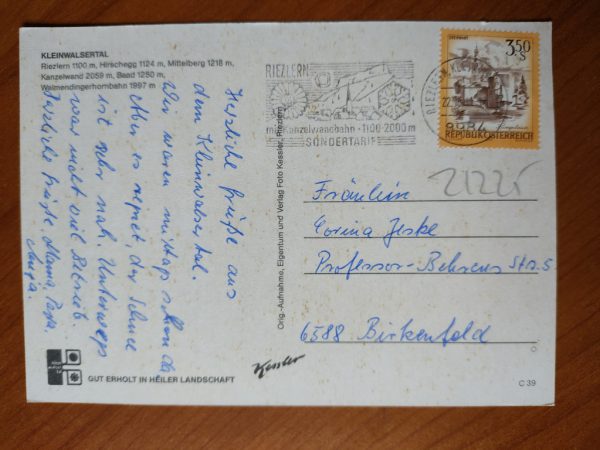 KLEINWALSERTAL
Riezlern 1100 m, Hirschegg 1124 m, Mittelberg 1218 m,
Kanzelwand 2059 m, Baad 1250 m,
Walmendingerhornbahn 1997 m
Herzliche Grüße aus
dem Kleinwalsertal.
Wir waren mittags schon da
Aber es regnet der Schnee
ist sehr naß. Unterwegs
war nicht viel Betrieb.
Herzliche Grüße Mama, Papa
Orig.-Aufnahme, Eigentum und Verlag Foto Kessler, Riezlern
Kessler
GUT ERHOLT IN HEILER LANDSCHAFT
RIEZLERN
mit Kanzelwandbahn · 1100-2000 m
SONDERTARIF
RIEZLERN
3,50
S
REPUBLIK ÖSTERREICH
21225
Fräulein
Corina Jeske
Professor-Behrens Str. 5
6588 Birkenfeld
C 39